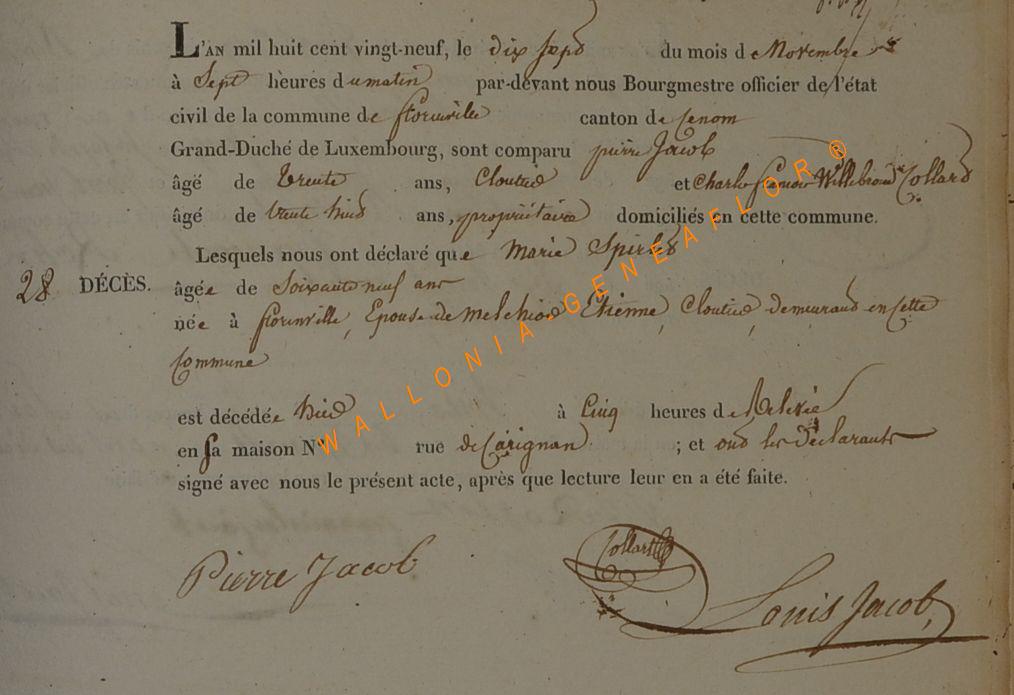 L'AN mil huit cent vingt-neuf, le dix sept du mois de Novembre
à Sept heures du matin par-devant nous Bourgmestre officier de l'état
civil de la commune de florenville canton de
Grand-Duché de Luxembourg, sont comparu pierre Jacob
âgé de trente ans, Cloutier et Charles françois Willebrord Collard
âgé de trente huit ans, propriétaire domiciliés en cette commune.
Lesquels nous ont déclaré que Marie Spirlet
28 DÉCÈS. âgée de Soixante neuf ans
née à florenville, Epouse de Melchior Étienne, Cloutier, demeurant en cette
Commune
est décédée hier à Cinq heures de
en sa maison N° rue de Carignan ; et ont les déclarants
signé avec nous le présent acte, après que lecture leur en a été faite.
Pierre Jacob Collart Louis Jacob
WALLONIA-GENEAFLOR®